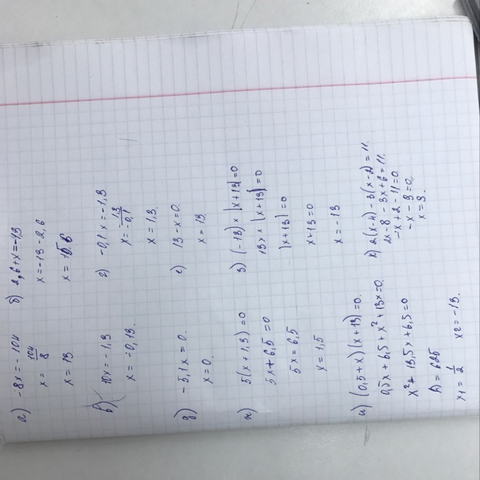 а) -8x = -104
x = 104/8
x = 13
б) 2,6+x=-13
x=-13-2,6
в) 10x = -1,3
x = -0,13.
г) -0,1x = -1,3
x = 13.
д) -5,1x = 0.
x = 0.
е) 13-x=0.
x = 13
ж) 5(x+1,3)=0
5x+6,5=0
5x = 6,5
x = 1,5
з) (-13)×|x+13|=0
|x+13|=0
x+13=0
x = -13
и) (0,5+x)(x+13)=0.
0,5x+6,5+x²+13x=0
x²+13,5x+6,5=0
x1 = 1/2 x2 = -13.
2x-8-3x+6=11.
-x+2-11=0.
-x-9=0.